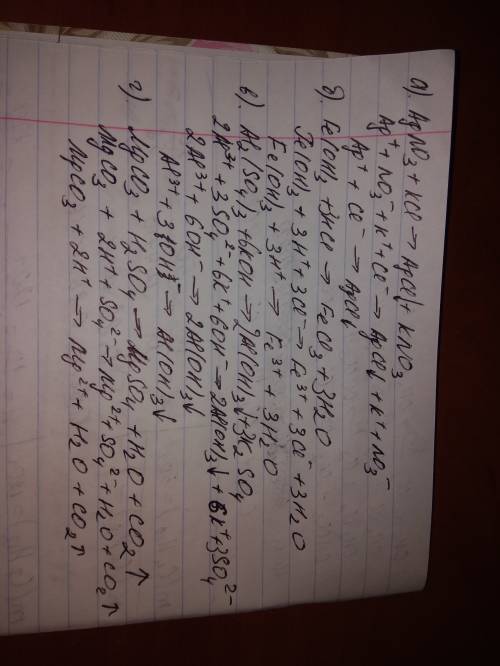 а). AgNO3 + KCl → AgCl↓ + KNO3
Ag⁺ + NO3⁻ + K⁺ + Cl⁻ → AgCl↓ + K⁺ + NO3⁻
Ag⁺ + Cl⁻ → AgCl↓
б). Fe(OH)3 + 3HCl → FeCl3 + 3H2O
Fe(OH)3 + 3H⁺ + 3Cl⁻ → Fe³⁺ + 3Cl⁻ + 3H2O
Fe(OH)3 + 3H⁺ → Fe³⁺ + 3H2O
в). Al2(SO4)3 + 6KOH → 2Al(OH)3↓ + 3K2SO4
2Al³⁺ + 3SO4²⁻ + 6K⁺ + 6OH⁻ → 2Al(OH)3↓ + 6K⁺ + 3SO4²⁻
2Al³⁺ + 6OH⁻ → 2Al(OH)3↓
Al³⁺ + 3(OH)⁻ → Al(OH)3↓
г). MgCO3 + H2SO4 → MgSO4 + H2O + CO2↑
MgCO3 + 2H⁺ + SO4²⁻ → Mg²⁺ + SO4²⁻ + H2O + CO2↑
MgCO3 + 2H⁺ → Mg²⁺ + H2O + CO2↑